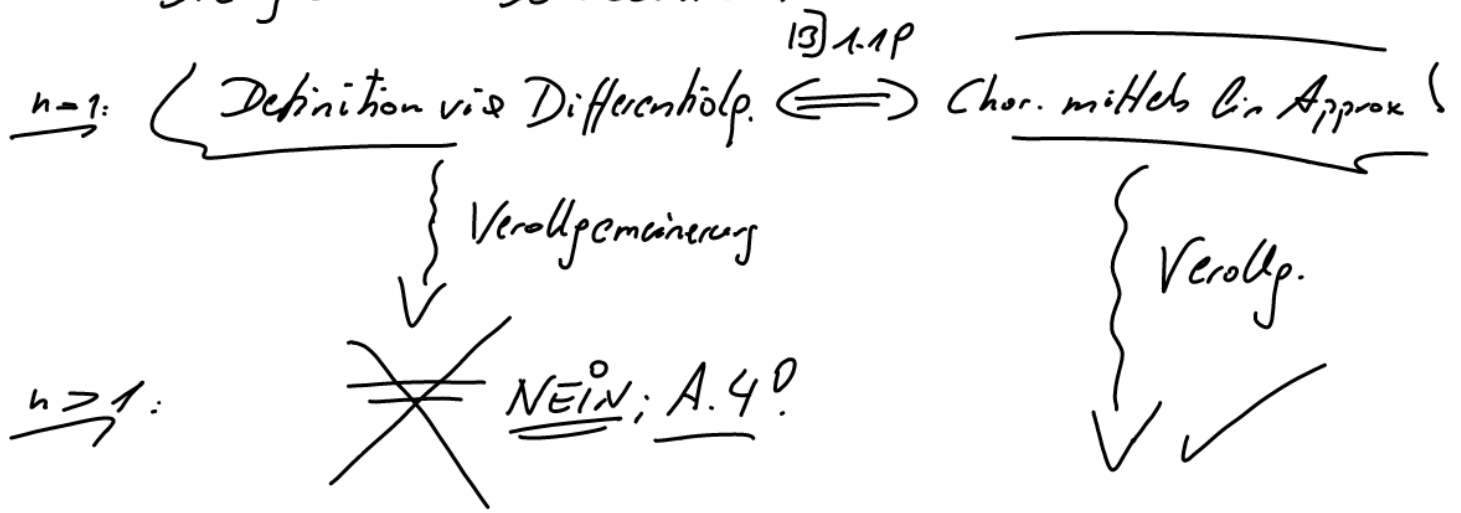 [3] 1.19
n=1: Definition via Differentialq. ⟺ Char. mittels lin Approx!
Verallgemeinerung Verallg.
n>1: NEIN; A.4!